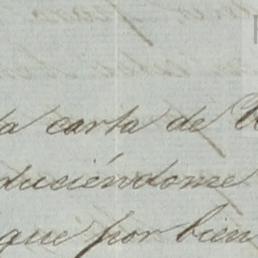 la carta de
duciéndome
que por bien